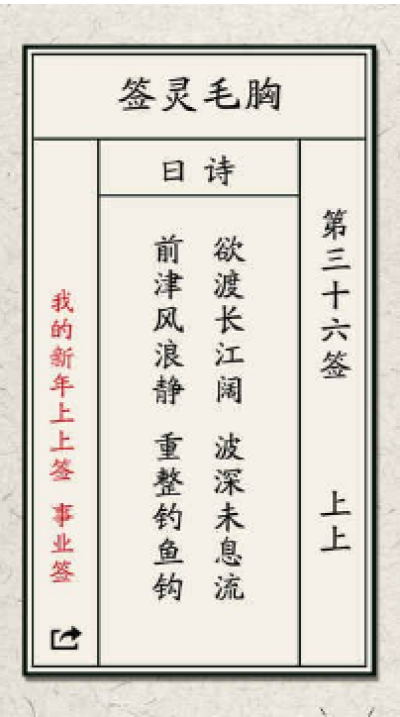 签灵毛胸
日诗
第三十六签 上上
欲渡长江阔 波深未息流
前津风浪静 重整钓鱼钩
我的新年上上签 事业签